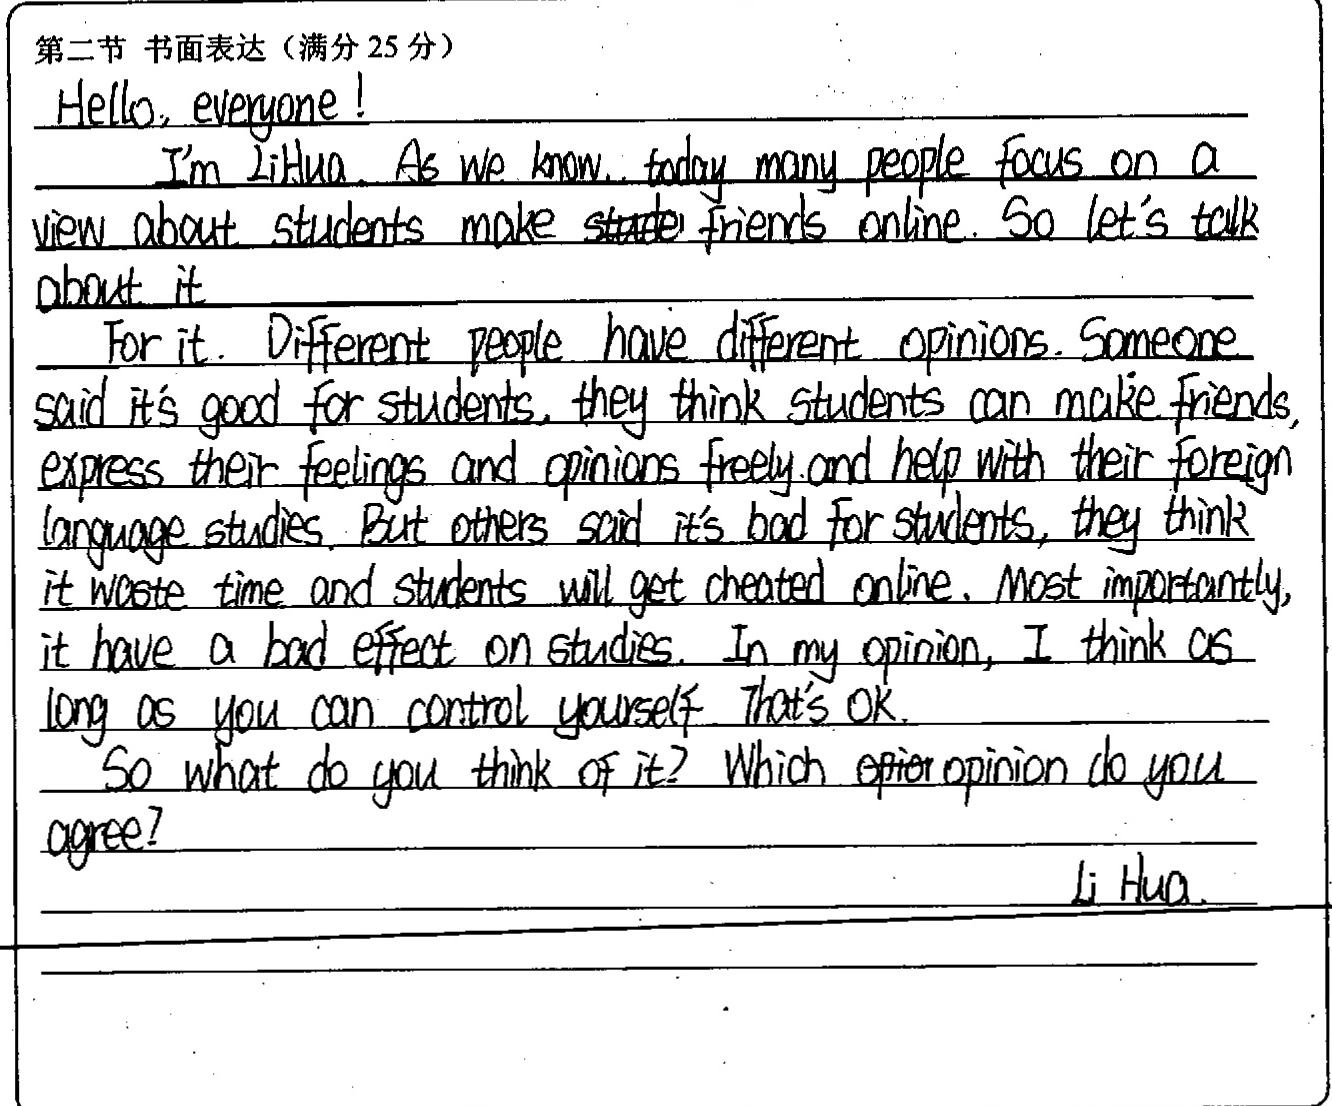 第二节 书面表达（满分 25 分）
Hello, everyone!
I'm LiHua. As we know, today many people focus on a
view about students make friends online. So let's talk
about it
For it. Different people have different opinions. Someone
said it's good for students, they think students can make friends,
express their feelings and opinions freely and help with their foreign
language studies. But others said it's bad for students, they think
it waste time and students will get cheated online. Most importantly,
it have a bad effect on studies. In my opinion, I think as
long as you can control yourself. That's OK.
So what do you think of it? Which opinion do you
agree?
Li Hua.